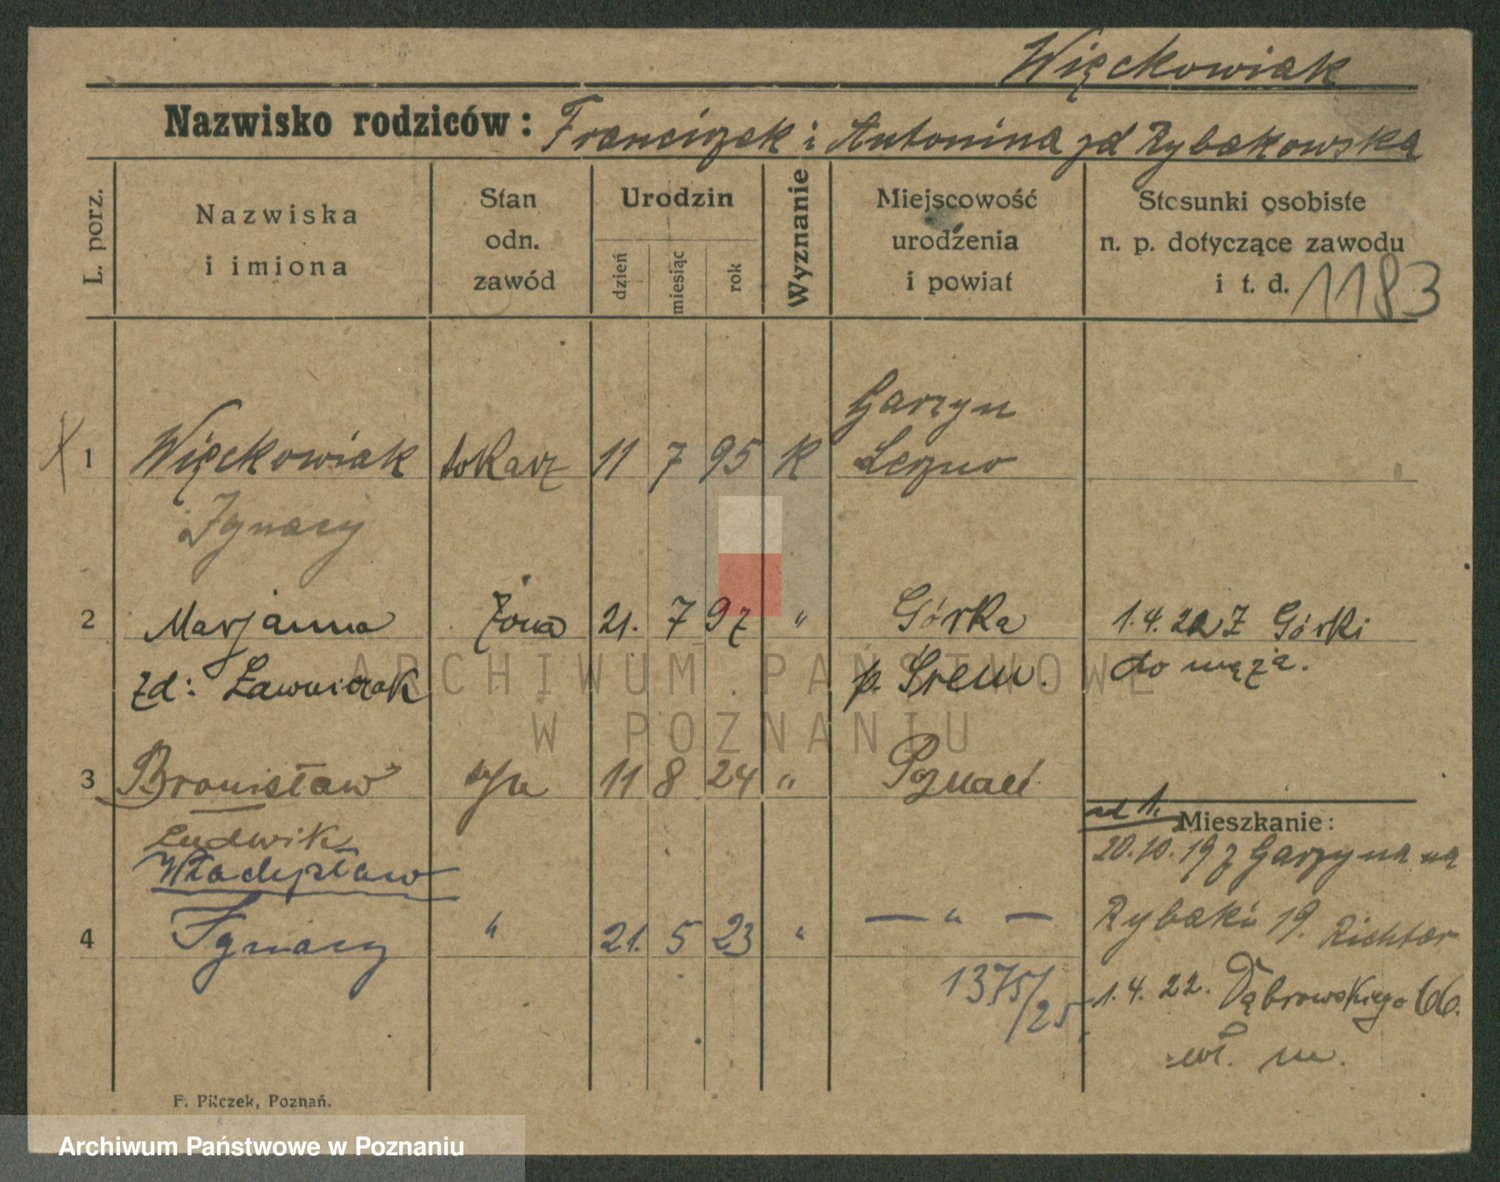 Więckowiak
Nazwisko rodziców: Franciszek i Antonina zd Rybakowska
L. porz.
Nazwiska
i imiona
Stan
odn.
zawód
Urodzin
dzień
miesiąc
rok
Wyznanie
Miejscowość
urodzenia
i powiat
Stosunki osobiste
n. p. dotyczące zawodu
i t. d. 1183
Garzyn
1 Więckowiak tokarz 11 7 95 K Leszno
Ignacy
2 Marjanna żona 21. 7 97 " Górka 1.4.22 z Górki
zd: Ławniczak p. Śrem. do męża.
3 Bronisław syn 11 8 24 " Poznań
od 1. Mieszkanie:
Ludwik
Władysław
20.10.19 z Garzyna na
4 Ignacy " 21. 5 23 " — " — Rybaki 19. Richter
1375/25 1.4.22. Dąbrowskiego 66.
wł. m.
F. Pilczek, Poznań.
ARCHIWUM PAŃSTWOWE
W POZNANIU
Archiwum Państwowe w Poznaniu